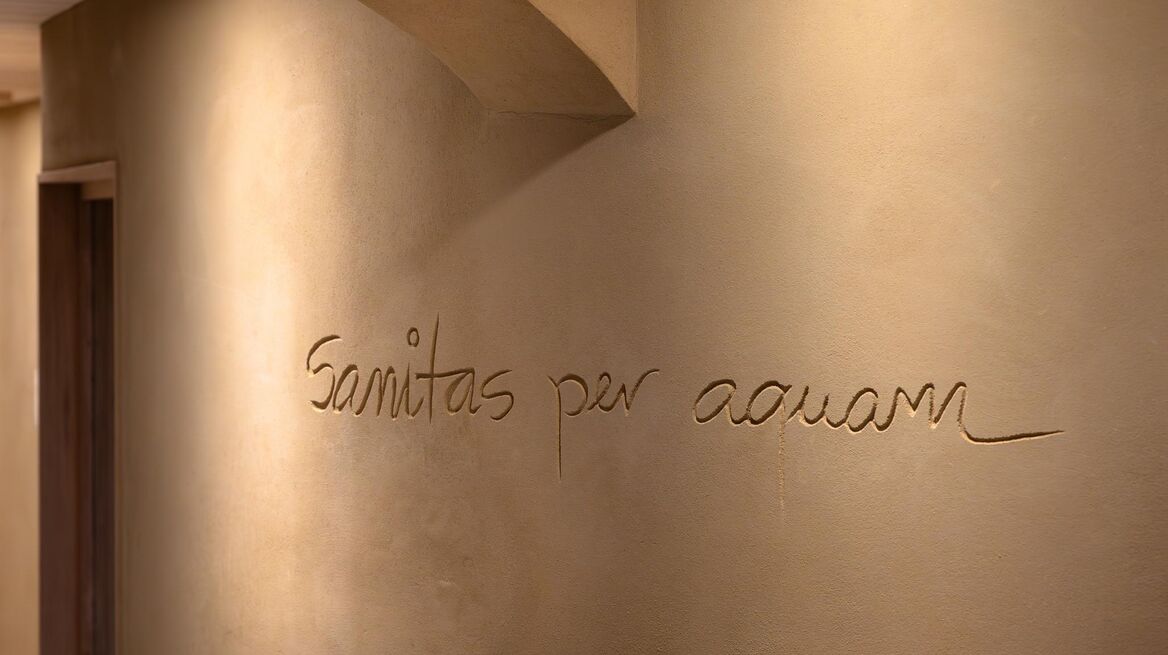 Sanitas per aquam